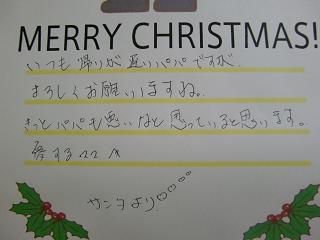 MERRY CHRISTMAS!
いつも帰りが遅いパパですが
よろしくお願いしますね。
きっとパパも悪いなと思っていると思います。
愛する
サンタより